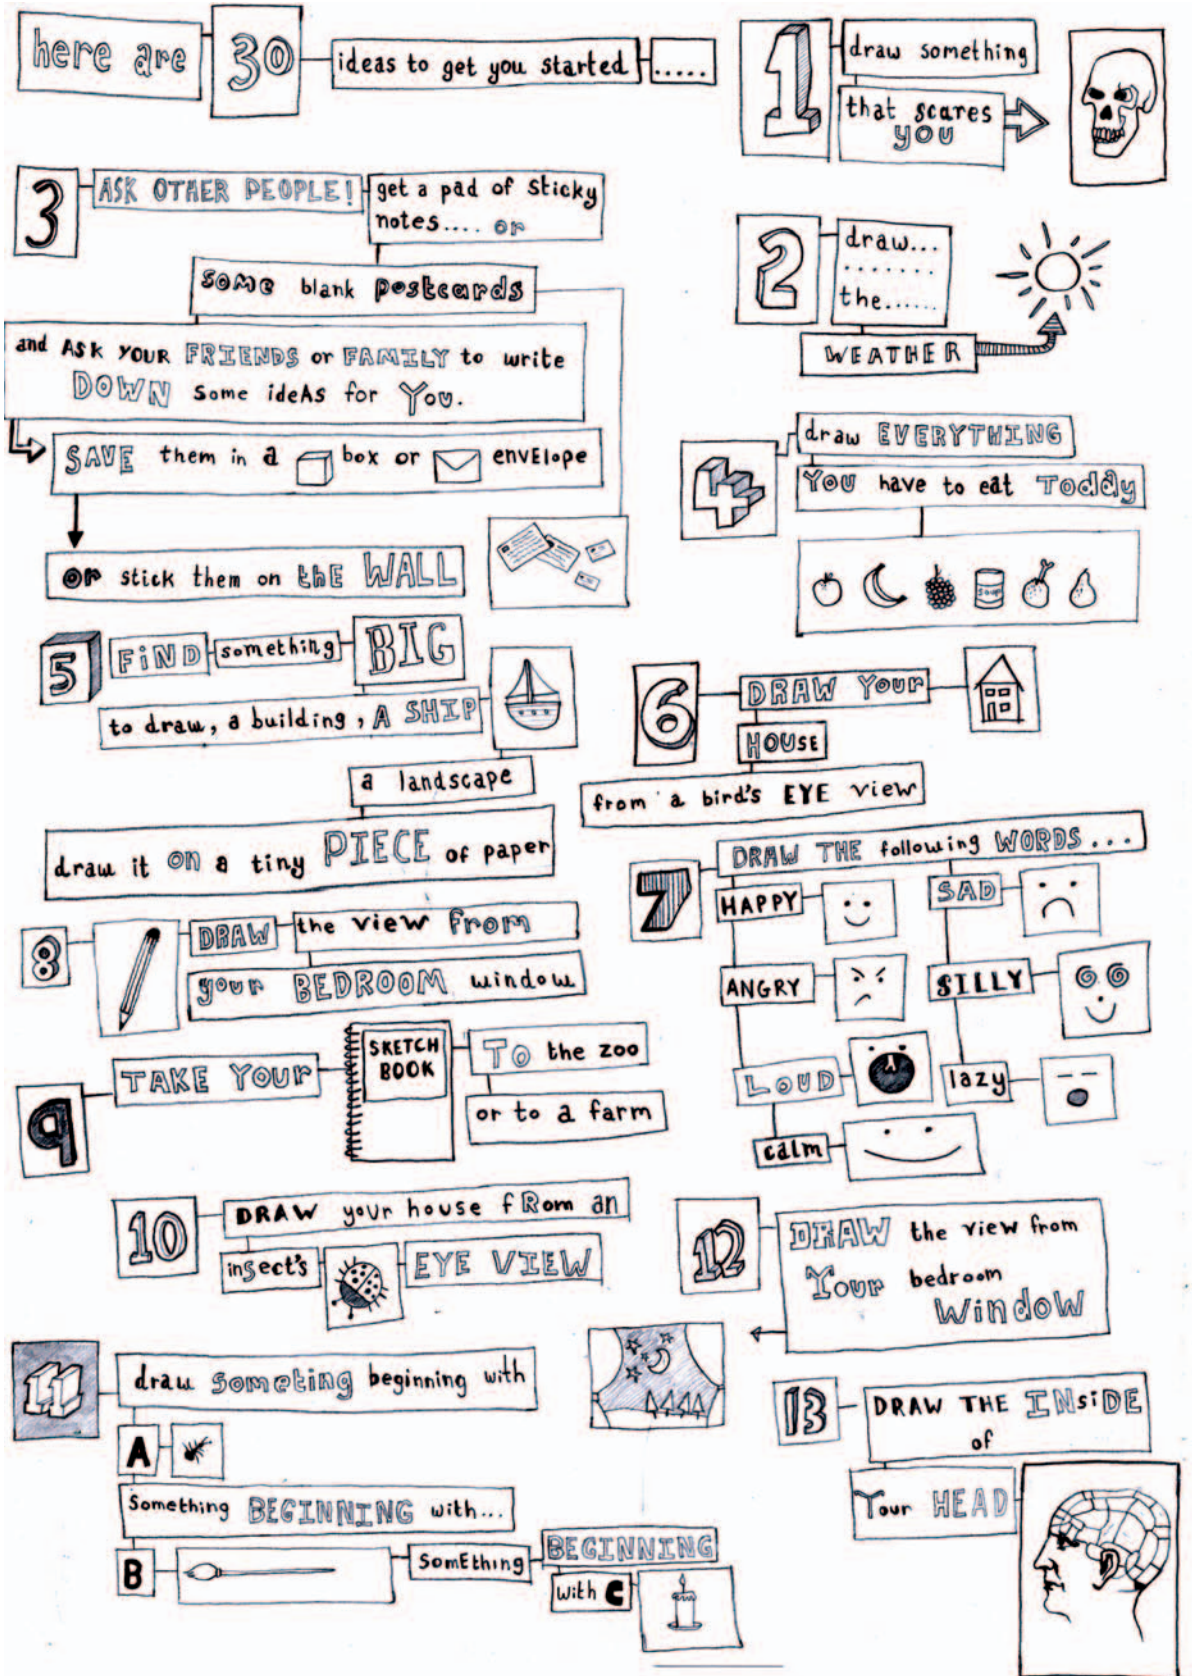 here are 30 ideas to get you started .....
1 draw something
that scares
YOU
2 draw...
.......
the......
WEATHER
3 ASK OTHER PEOPLE! get a pad of sticky
notes.... or
some blank postcards
and ASK YOUR FRIENDS or FAMILY to write
DOWN some ideAs for You.
SAVE them in a box or envElope
or stick them on thE WALL
4 draw EVERYTHING
YOU have to eat Today
soup
5 FiND something BIG
to draw, a building, A SHIP
a landscape
draw it on a tiny PIECE of paper
6 DRAW Your
HOUSE
from a bird's EYE view
7 DRAW THE following WORDS...
HAPPY SAD
ANGRY SILLY
LOUD lazy
calm
8 DRAW the view from
your BEDROOM window
9 TAKE YOUR SKETCH
BOOK
TO the zoo
or to a farm
10 DRAW your house fRom an
insect's EYE VIEW
11 draw someting beginning with
A
Something BEGINNING with...
B SomEthing BEGINNING
with C
12 DRAW the view from
Your bedroom
WindoW
13 DRAW THE INSiDE
of
Your HEAD